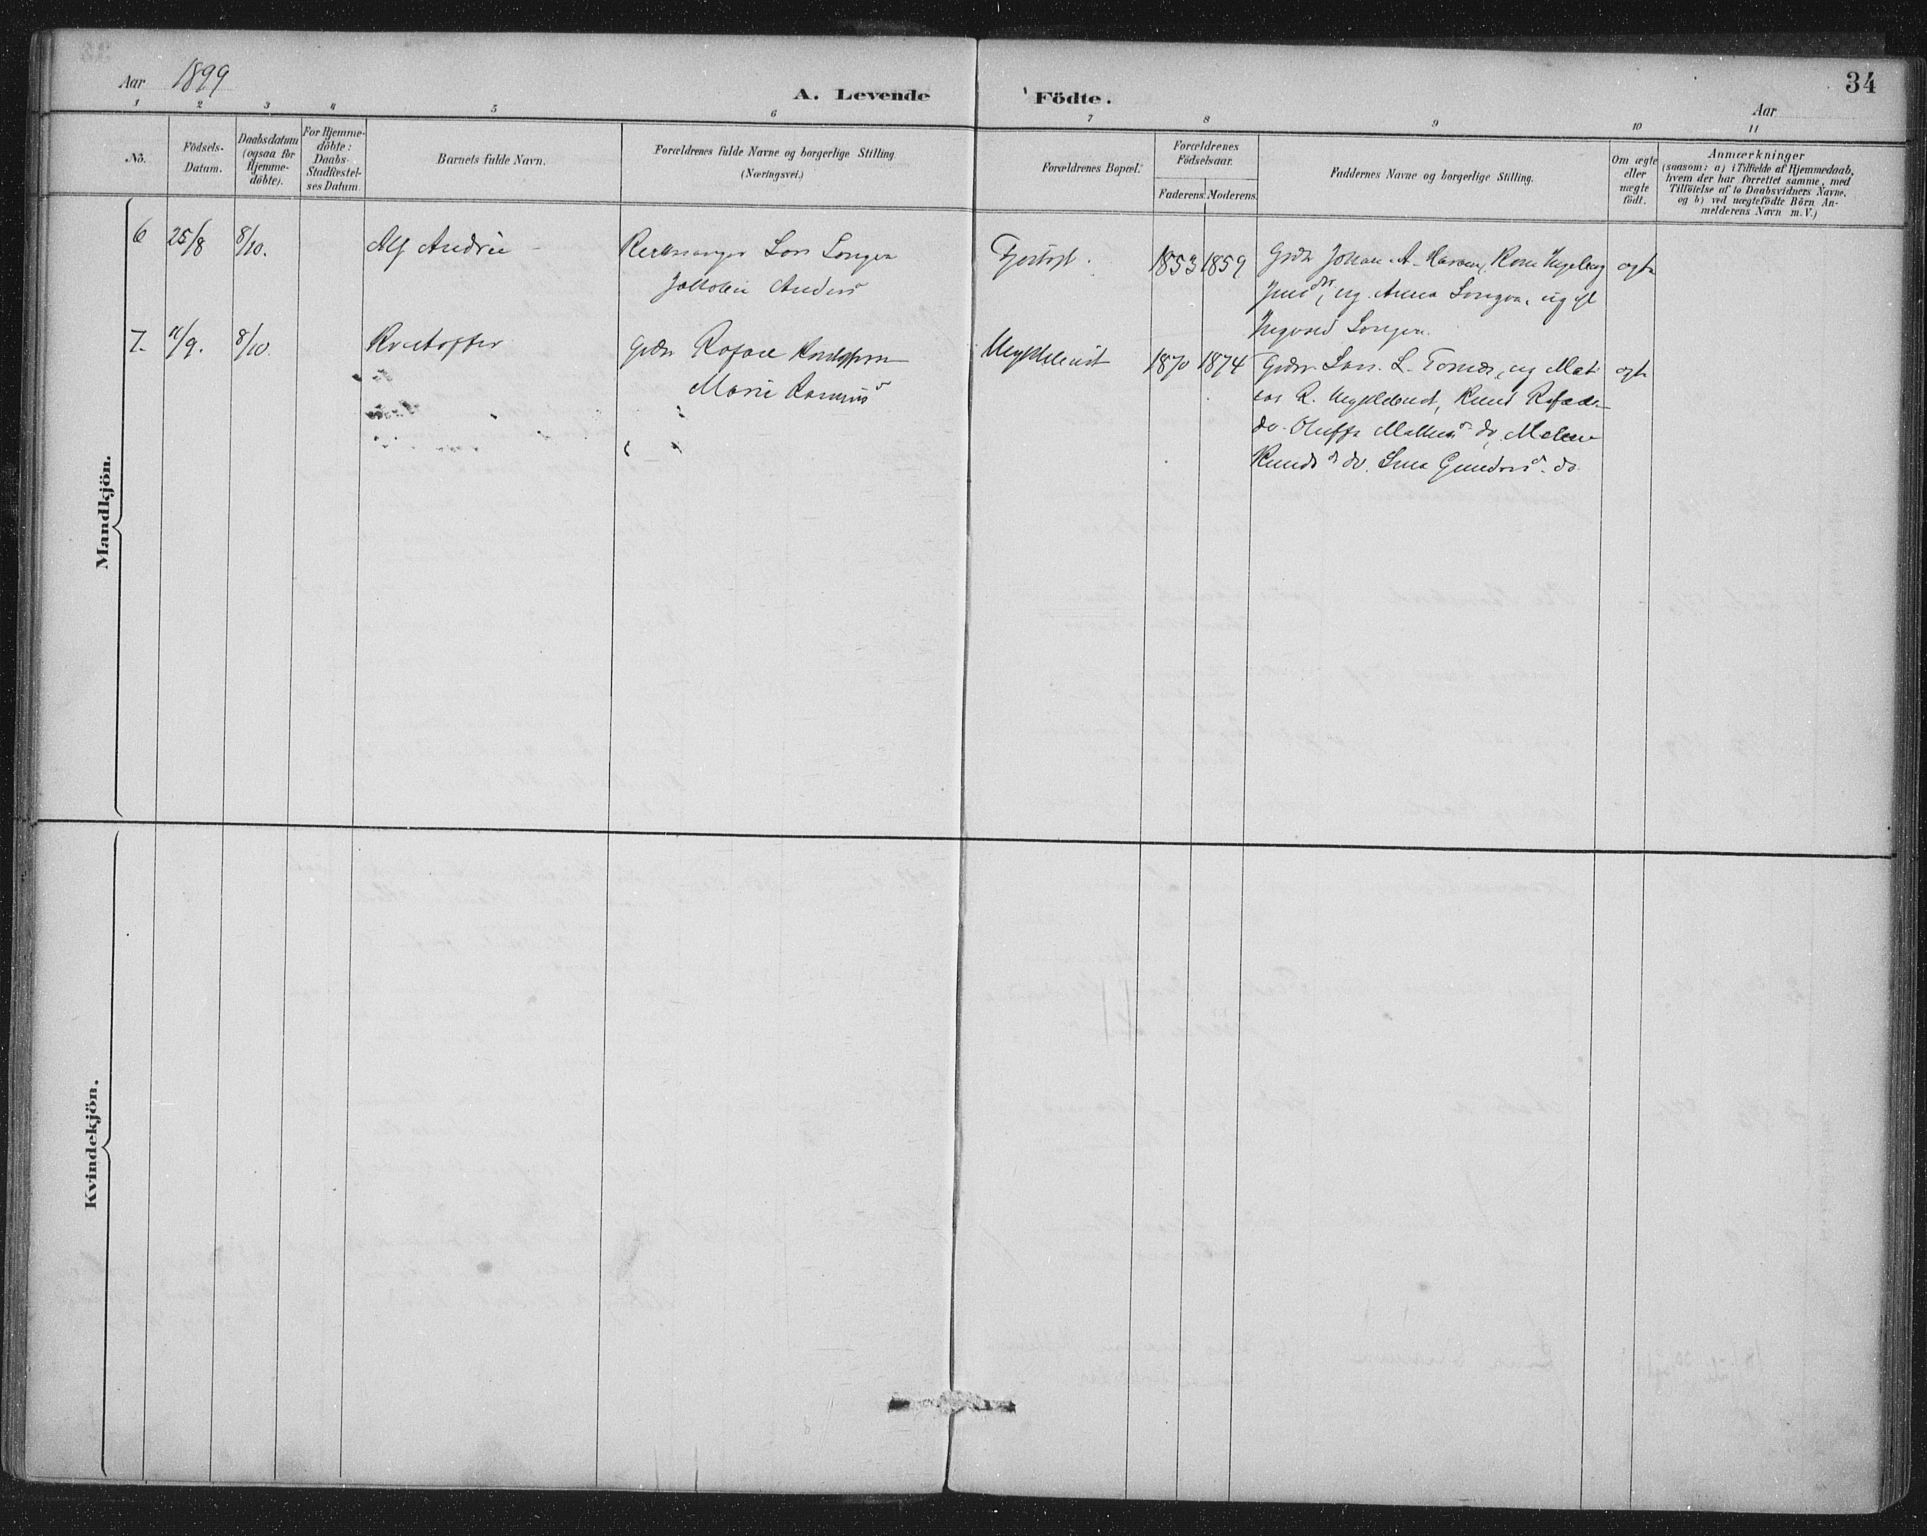 Aar 1899
A. Levende Födte.
Aar
34
1 2 3 4 5 6 7 8 9 10 11
No.
Födsels-
Datum.
Daabsdatum
(ogsaa for
Hjemme-
döbte).
For Hjemme-
döbte:
Daabs-
Stadfæstel-
ses Datum.
Barnets fulde Navn.
Forældrenes fulde Navne og borgerlige Stilling
(Næringsvei.)
Forældrenes Bopæl.
Forældrenes
Födselsaar.
Faderens. Moderens.
Faddernes Navne og borgerlige Stilling.
Om ægte
eller
uægte
födt.
Anmærkninger
(saasom: a) i Tilfælde af Hjemmedaab,
hvem der har forrettet samme, med
Tilföielse af to Daabsvidners Navne,
og b) ved uægtefödte Börn An-
melderens Navn m. V.)
Mandkjön.
6 25/8 8/10. Alf Andrie
Kirkesanger Lars Longva
Anders
Fjørtoft. 1853 1859
Gdr. Johan A. Kone Ingeborg
og Anna Longva, ug
Ingvald Longva.
ægte
7. /9. 8/10 Kristoffer
Gdr. Rafael
Marie Rasmus
Myklebust 1870 1874
Gdr. Lars L. og Mat
R. Myklebust, Knud
do. Oluffa do, Malene
Knuds do. Gunders do.
ægte
Kvindekjön.